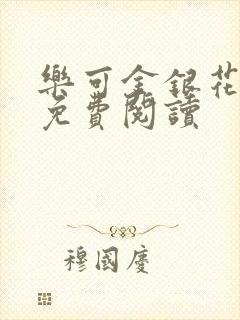 樂可金銀花
免費閱讀
穆國慶